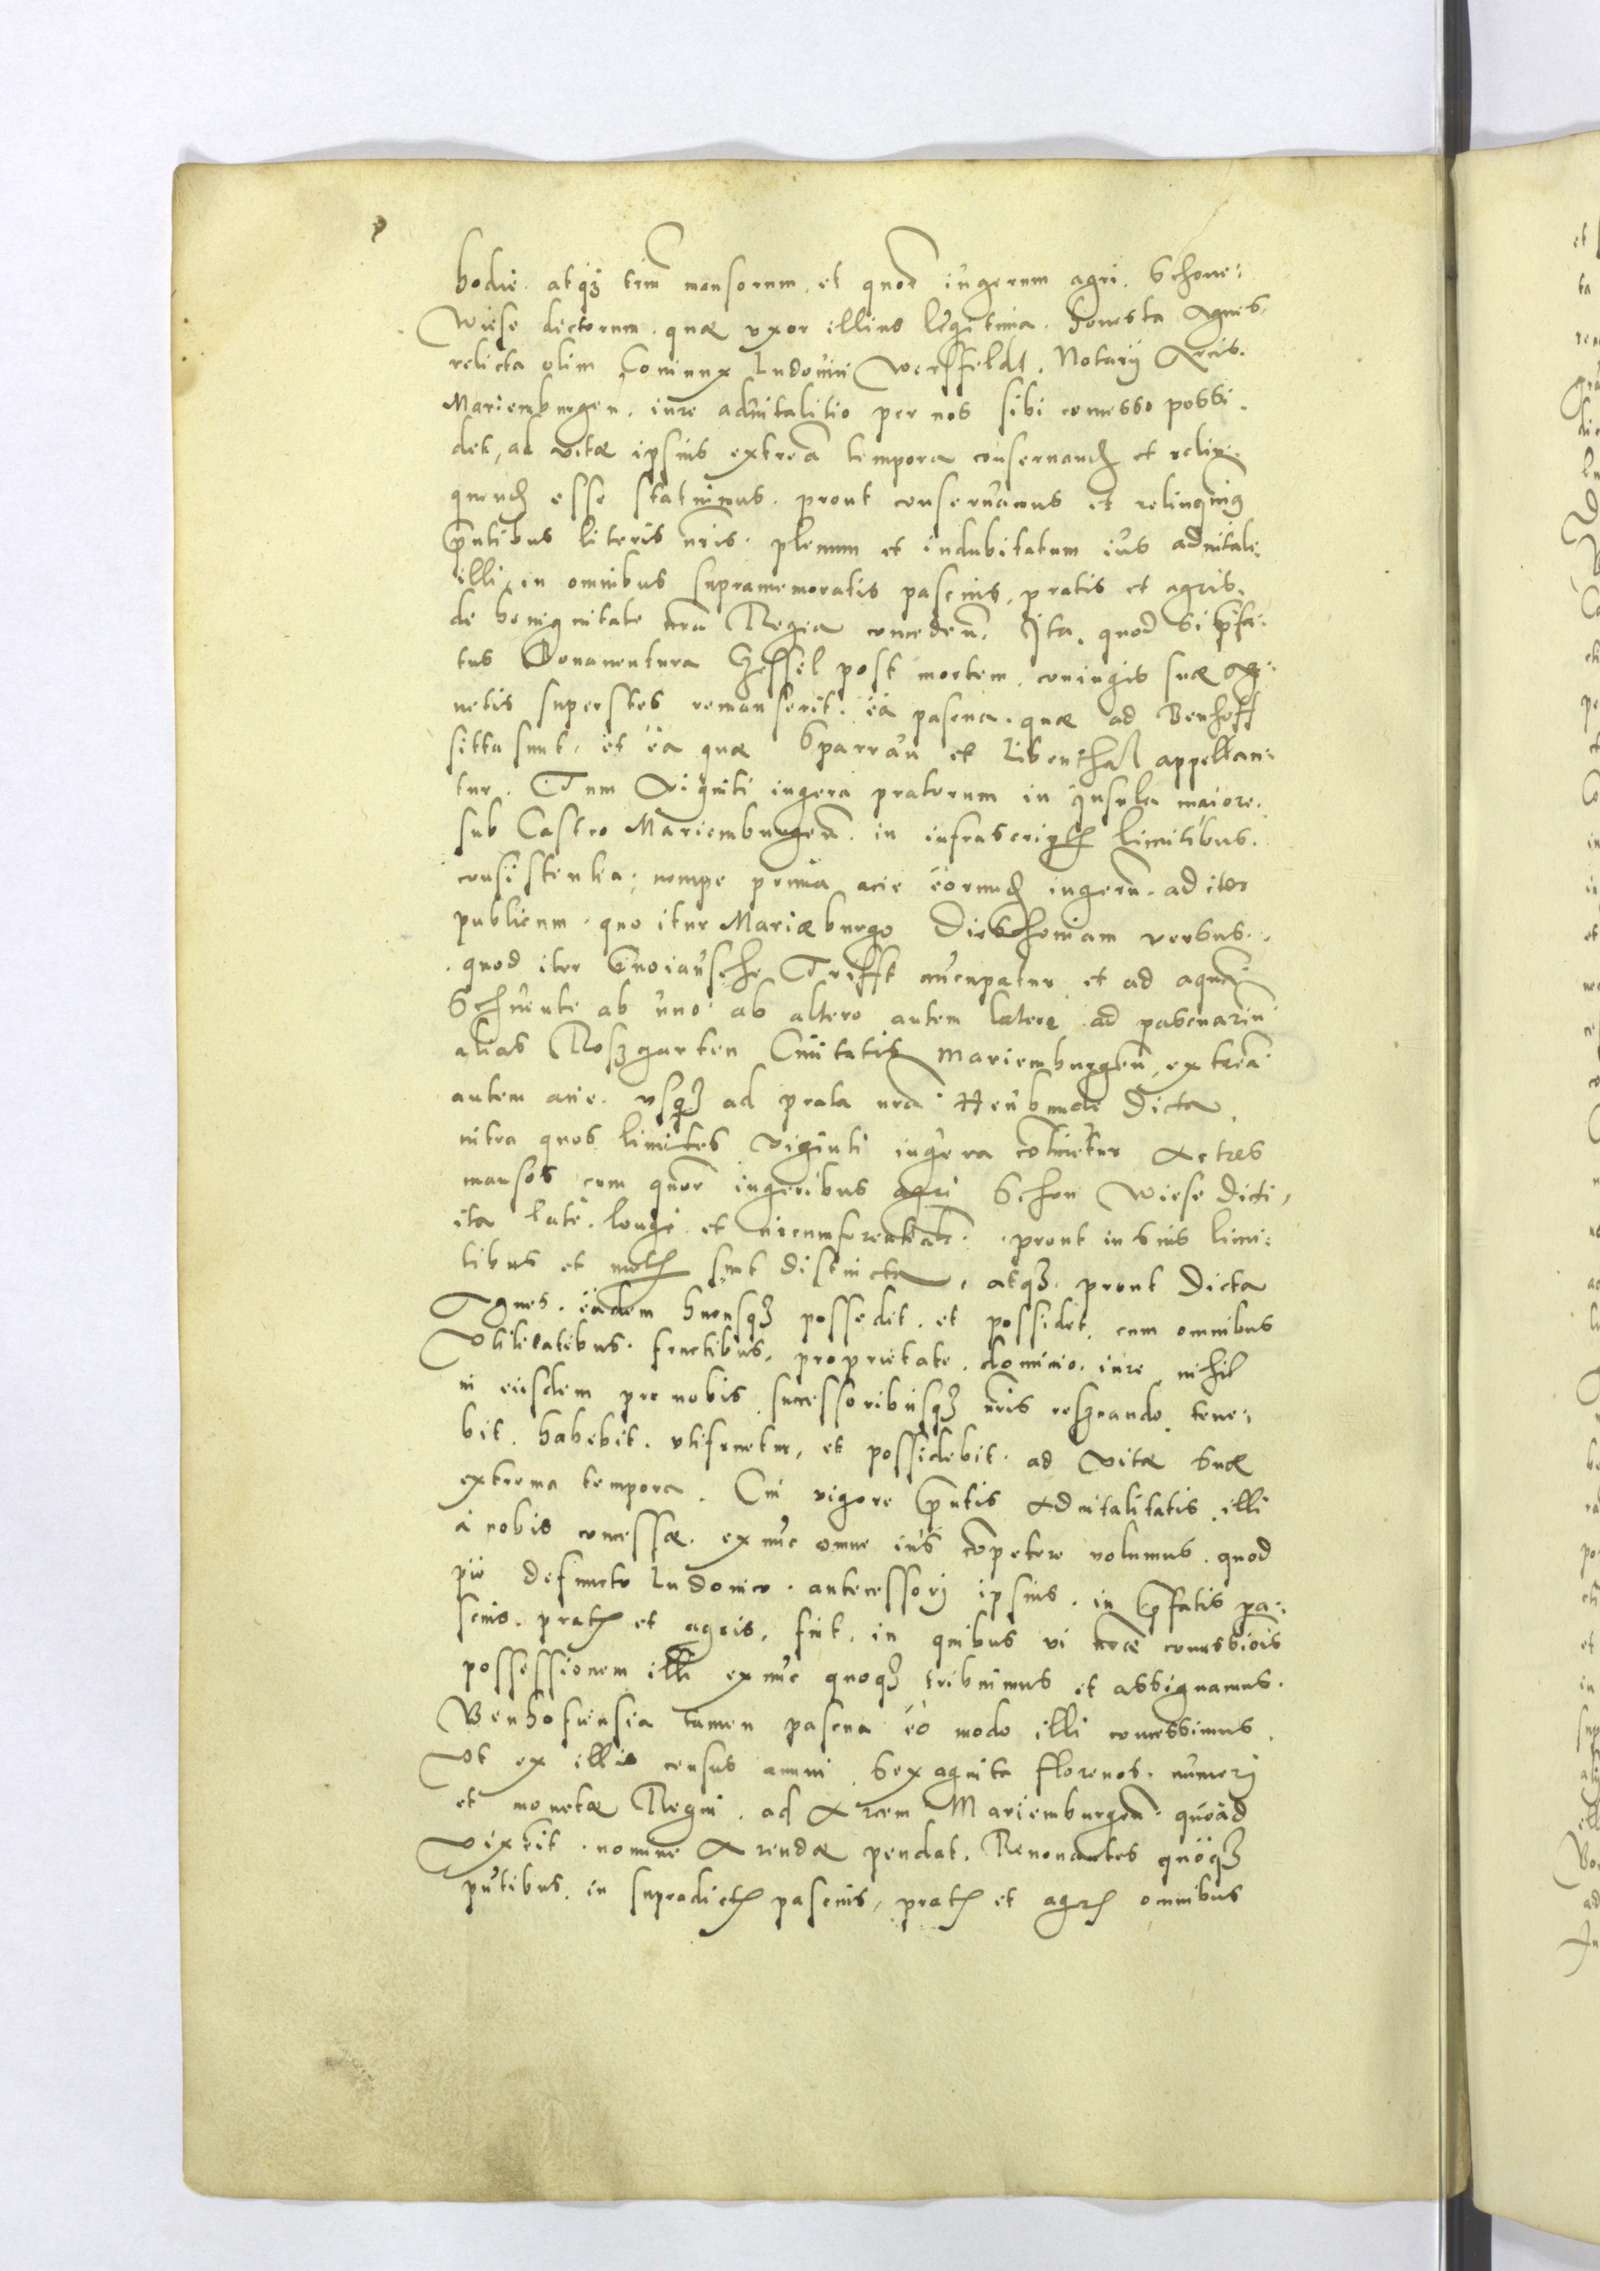 hodie. atqz trim mansorum, et quod iugerum agri. Schone:
Wiese dictorum. quæ vxor illius legitima. honesta Agnes,
relicta olim Coniunx Ludouici Werffeldt, Notarij Arcis.
Mariemburgen. iure aduitalitio per nos sibi concesso possi.
det, ad vitæ ipsius extrea tempora conseruand et relin:
quend esse statuimus. prout conseruamus et relinquimus
pntibus literis nris. plenum et indubitatum ius aduitale
illi, in omnibus supramemoratis pascuis, pratis et agris.
de benignitate nra Regia conceden. Ita, quod si pfa:
tus Bonauentura Gessel post mortem, coniugis suæ Ag:
netis superstes remanserit. ea pascua. quæ ad Benhoff
sitta sunt, et ea quæ Sparrau et Libenthal appellan:
tur. Tum Viginti iugera pratorum in Insula maiore.
sub Castro Mariemburgen. in infrascript limitibus.
consistentia; nempe prima acie eorund iugeru. ad iter
publicum. quo itur Mariæburgo Dirschouiam versus..
. quod iter Gnoiausche Trifft nucupatur et ad aquam
Schuente ab uno ab altero autem latere ad pascuariu
alias Roszgarten Ciuitatis Mariemburgen, extrea
autem acie. vsqz ad prata nra Heubude dicta,
intra quos limites viginti iugera cotinetur Ac tres
mansos cum quor iugeribus agri Schon Wiese dicti,
ita late. longe et circumferentiat. prout in suis limi:
tibus et met sunt distincta, atqz. prout dicta
Agnes. eadem hucusqz possedit. et possidet, cum omnibus
Vtilitatibus. fructibus, proprietate. dominio. iure nihil
in eisdem pro nobis successoribusqz nris reseruando tene:
bit. habebit. vtifruetur, et possidebit. ad vitæ suæ
extrema tempora. Cui vigore pntis Aduitalitatis illi
a nobis concessæ. ex nuc omne ius copetere volumus. quod
pie defuncto Ludouico. antecessori ipsius. in pfatis pa:
scuis. prat et agris, fuit, in quibus vi nræ concessiois
possessionem illi ex nuc quoqz tribuimus et assignamus.
Benhofiensia tamen pascua eo modo illi concessimus.
Vt ex illis census annui Sexaginta florenos. numeri
et monetæ Regni. ad Arcem Mariemburgen. quoad
vixerit. nomine Arendæ pendat. Renonantes quoqz
pntibus. in supradict pascuis, prat et agr omnibus